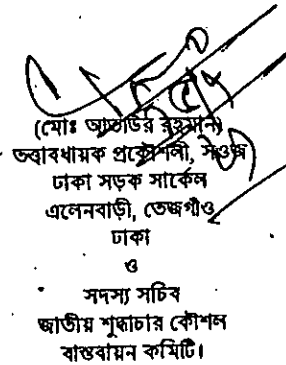 (মোঃ আতাউর রহমান)
তত্ত্বাবধায়ক প্রকৌশলী, সওজ
ঢাকা সড়ক সার্কেল
এলেনবাড়ী, তেজগাঁও
ঢাকা
ও
সদস্য সচিব
জাতীয় শুদ্ধাচার কৌশল
বাস্তবায়ন কমিটি।